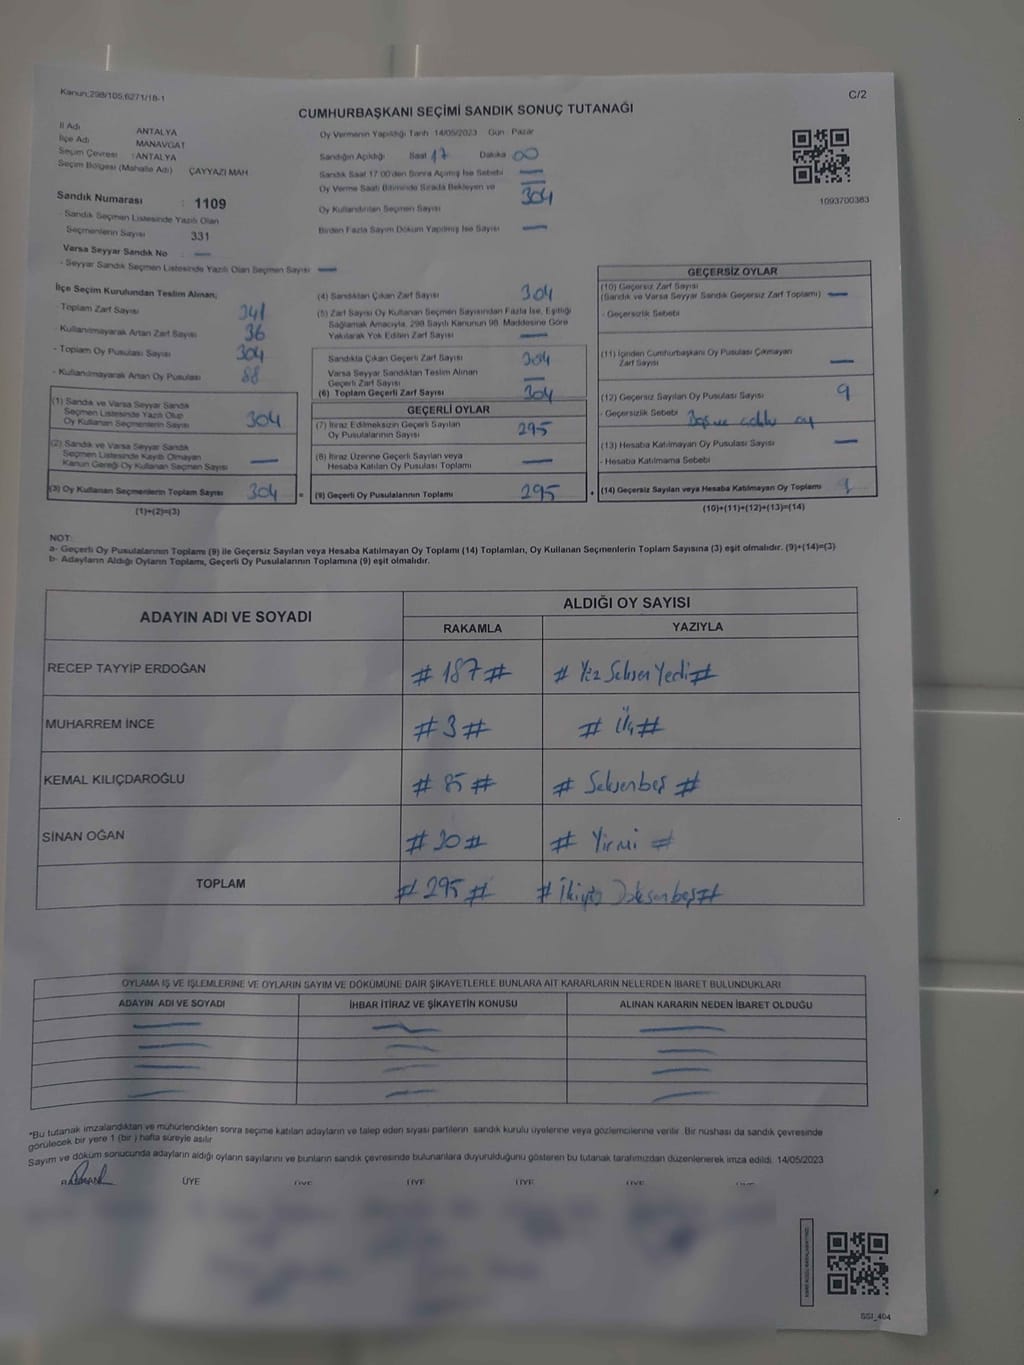 Kanun:298/105,6271/18-1
C/2
CUMHURBAŞKANI SEÇİMİ SANDIK SONUÇ TUTANAĞI
İl Adı ANTALYA
İlçe Adı MANAVGAT
Seçim Çevresi : ANTALYA
Seçim Bölgesi (Mahalle Adı) ÇAYYAZI MAH.
Sandık Numarası : 1109
- Sandık Seçmen Listesinde Yazılı Olan
Seçmenlerin Sayısı 331
Varsa Seyyar Sandık No : —
- Seyyar Sandık Seçmen Listesinde Yazılı Olan Seçmen Sayısı —
Oy Vermenin Yapıldığı Tarih 14/05/2023 Gün : Pazar
Sandığın Açıldığı Saat 17 Dakika 00
Sandık Saat 17.00'den Sonra Açılmış İse Sebebi —
Oy Verme Saati Bitiminde Sırada Bekleyen ve —
Oy Kullandırılan Seçmen Sayısı 304
Birden Fazla Sayım Döküm Yapılmış İse Sayısı —
1093700363
İlçe Seçim Kurulundan Teslim Alınan;
Toplam Zarf Sayısı 341
- Kullanılmayarak Artan Zarf Sayısı 36
- Toplam Oy Pusulası Sayısı 304
- Kullanılmayarak Artan Oy Pusulası 88
(1) Sandık ve Varsa Seyyar Sandık
Seçmen Listesinde Yazılı Olup
Oy Kullanan Seçmenlerin Sayısı 304
(2) Sandık ve Varsa Seyyar Sandık
Seçmen Listesinde Kayıtlı Olmayan
Kanun Gereği Oy Kullanan Seçmen Sayısı —
(3) Oy Kullanan Seçmenlerin Toplam Sayısı 304 =
(1)+(2)=(3)
(4) Sandıktan Çıkan Zarf Sayısı 304
(5) Zarf Sayısı Oy Kullanan Seçmen Sayısından Fazla İse, Eşitliği
Sağlamak Amacıyla, 298 Sayılı Kanunun 98. Maddesine Göre
Yakılarak Yok Edilen Zarf Sayısı —
Sandıkta Çıkan Geçerli Zarf Sayısı 304
Varsa Seyyar Sandıktan Teslim Alınan
Geçerli Zarf Sayısı —
(6) Toplam Geçerli Zarf Sayısı 304
GEÇERLİ OYLAR
(7) İtiraz Edilmeksizin Geçerli Sayılan
Oy Pusulalarının Sayısı 295
(8) İtiraz Üzerine Geçerli Sayılan veya
Hesaba Katılan Oy Pusulası Toplamı —
(9) Geçerli Oy Pusulalarının Toplamı 295 +
GEÇERSİZ OYLAR
(10) Geçersiz Zarf Sayısı
(Sandık ve Varsa Seyyar Sandık Geçersiz Zarf Toplamı) —
- Geçersizlik Sebebi
(11) İçinden Cumhurbaşkanı Oy Pusulası Çıkmayan
Zarf Sayısı —
(12) Geçersiz Sayılan Oy Pusulası Sayısı 9
- Geçersizlik Sebebi
(13) Hesaba Katılmayan Oy Pusulası Sayısı —
- Hesaba Katılmama Sebebi
(14) Geçersiz Sayılan veya Hesaba Katılmayan Oy Toplamı 9
(10)+(11)+(12)+(13)=(14)
NOT:
a- Geçerli Oy Pusulalarının Toplamı (9) ile Geçersiz Sayılan veya Hesaba Katılmayan Oy Toplamı (14) Toplamları, Oy Kullanan Seçmenlerin Toplam Sayısına (3) eşit olmalıdır. (9)+(14)=(3)
b- Adayların Aldığı Oyların Toplamı, Geçerli Oy Pusulalarının Toplamına (9) eşit olmalıdır.
ADAYIN ADI VE SOYADI ALDIĞI OY SAYISI
RAKAMLA YAZIYLA
RECEP TAYYİP ERDOĞAN # 187 # # Yüz Seksen Yedi #
MUHARREM İNCE # 3 # # Üç #
KEMAL KILIÇDAROĞLU # 85 # # Seksenbeş #
SİNAN OĞAN # 20 # # Yirmi #
TOPLAM # 295 # # İkiyüz Doksanbeş #
OYLAMA İŞ VE İŞLEMLERİNE VE OYLARIN SAYIM VE DÖKÜMÜNE DAİR ŞİKAYETLERLE BUNLARA AİT KARARLARIN NELERDEN İBARET BULUNDUKLARI
ADAYIN ADI VE SOYADI İHBAR İTİRAZ VE ŞİKAYETİN KONUSU ALINAN KARARIN NEDEN İBARET OLDUĞU
*Bu tutanak imzalandıktan ve mühürlendikten sonra seçime katılan adayların ve talep eden siyasi partilerin sandık kurulu üyelerine veya gözlemcilerine verilir. Bir nüshası da sandık çevresinde
görülecek bir yere 1 (bir) hafta süreyle asılır
Sayım ve döküm sonucunda adayların aldığı oyların sayılarını ve bunların sandık çevresinde bulunanlara duyurulduğunu gösteren bu tutanak tarafımızdan düzenlenerek imza edildi. 14/05/2023
ÜYE ÜYE ÜYE ÜYE ÜYE
SSI_404